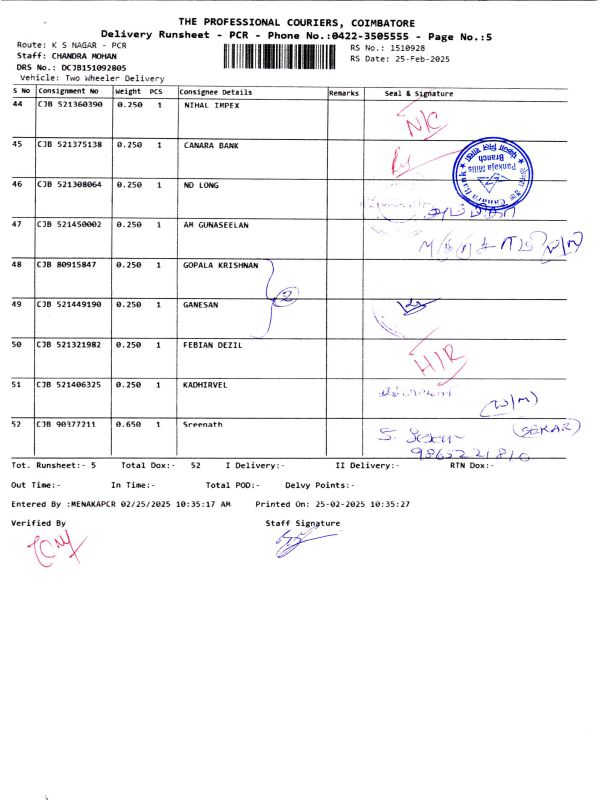 THE PROFESSIONAL COURIERS, COIMBATORE
Delivery Runsheet - PCR - Phone No.:0422-3505555 - Page No.:5
Route: K S NAGAR - PCR
RS No.: 1510928
Staff: CHANDRA MOHAN
RS Date: 25-Feb-2025
DRS No.: DCJB151092805
Vehicle: Two Wheeler Delivery
S No Consignment No Weight PCS Consignee Details Remarks Seal & Signature
44 CJB 521360390 0.250 1 NIHAL IMPEX
N/C
45 CJB 521375138 0.250 1 CANARA BANK
Canara Bank
Pankaja Mills
Branch
46 CJB 521308064 0.250 1 ND LONG
47 CJB 521450002 0.250 1 AM GUNASEELAN
48 CJB 80915847 0.250 1 GOPALA KRISHNAN
2
49 CJB 521449190 0.250 1 GANESAN
50 CJB 521321982 0.250 1 FEBIAN DEZIL
H/R
51 CJB 521406325 0.250 1 KADHIRVEL
(W/M)
52 CJB 90377211 0.650 1 Sreenath
(SEKAR)
9865221810
Tot. Runsheet:- 5 Total Dox:- 52 I Delivery:- II Delivery:- RTN Dox:-
Out Time:- In Time:- Total POD:- Delvy Points:-
Entered By :MENAKAPCR 02/25/2025 10:35:17 AM Printed On: 25-02-2025 10:35:27
Verified By Staff Signature